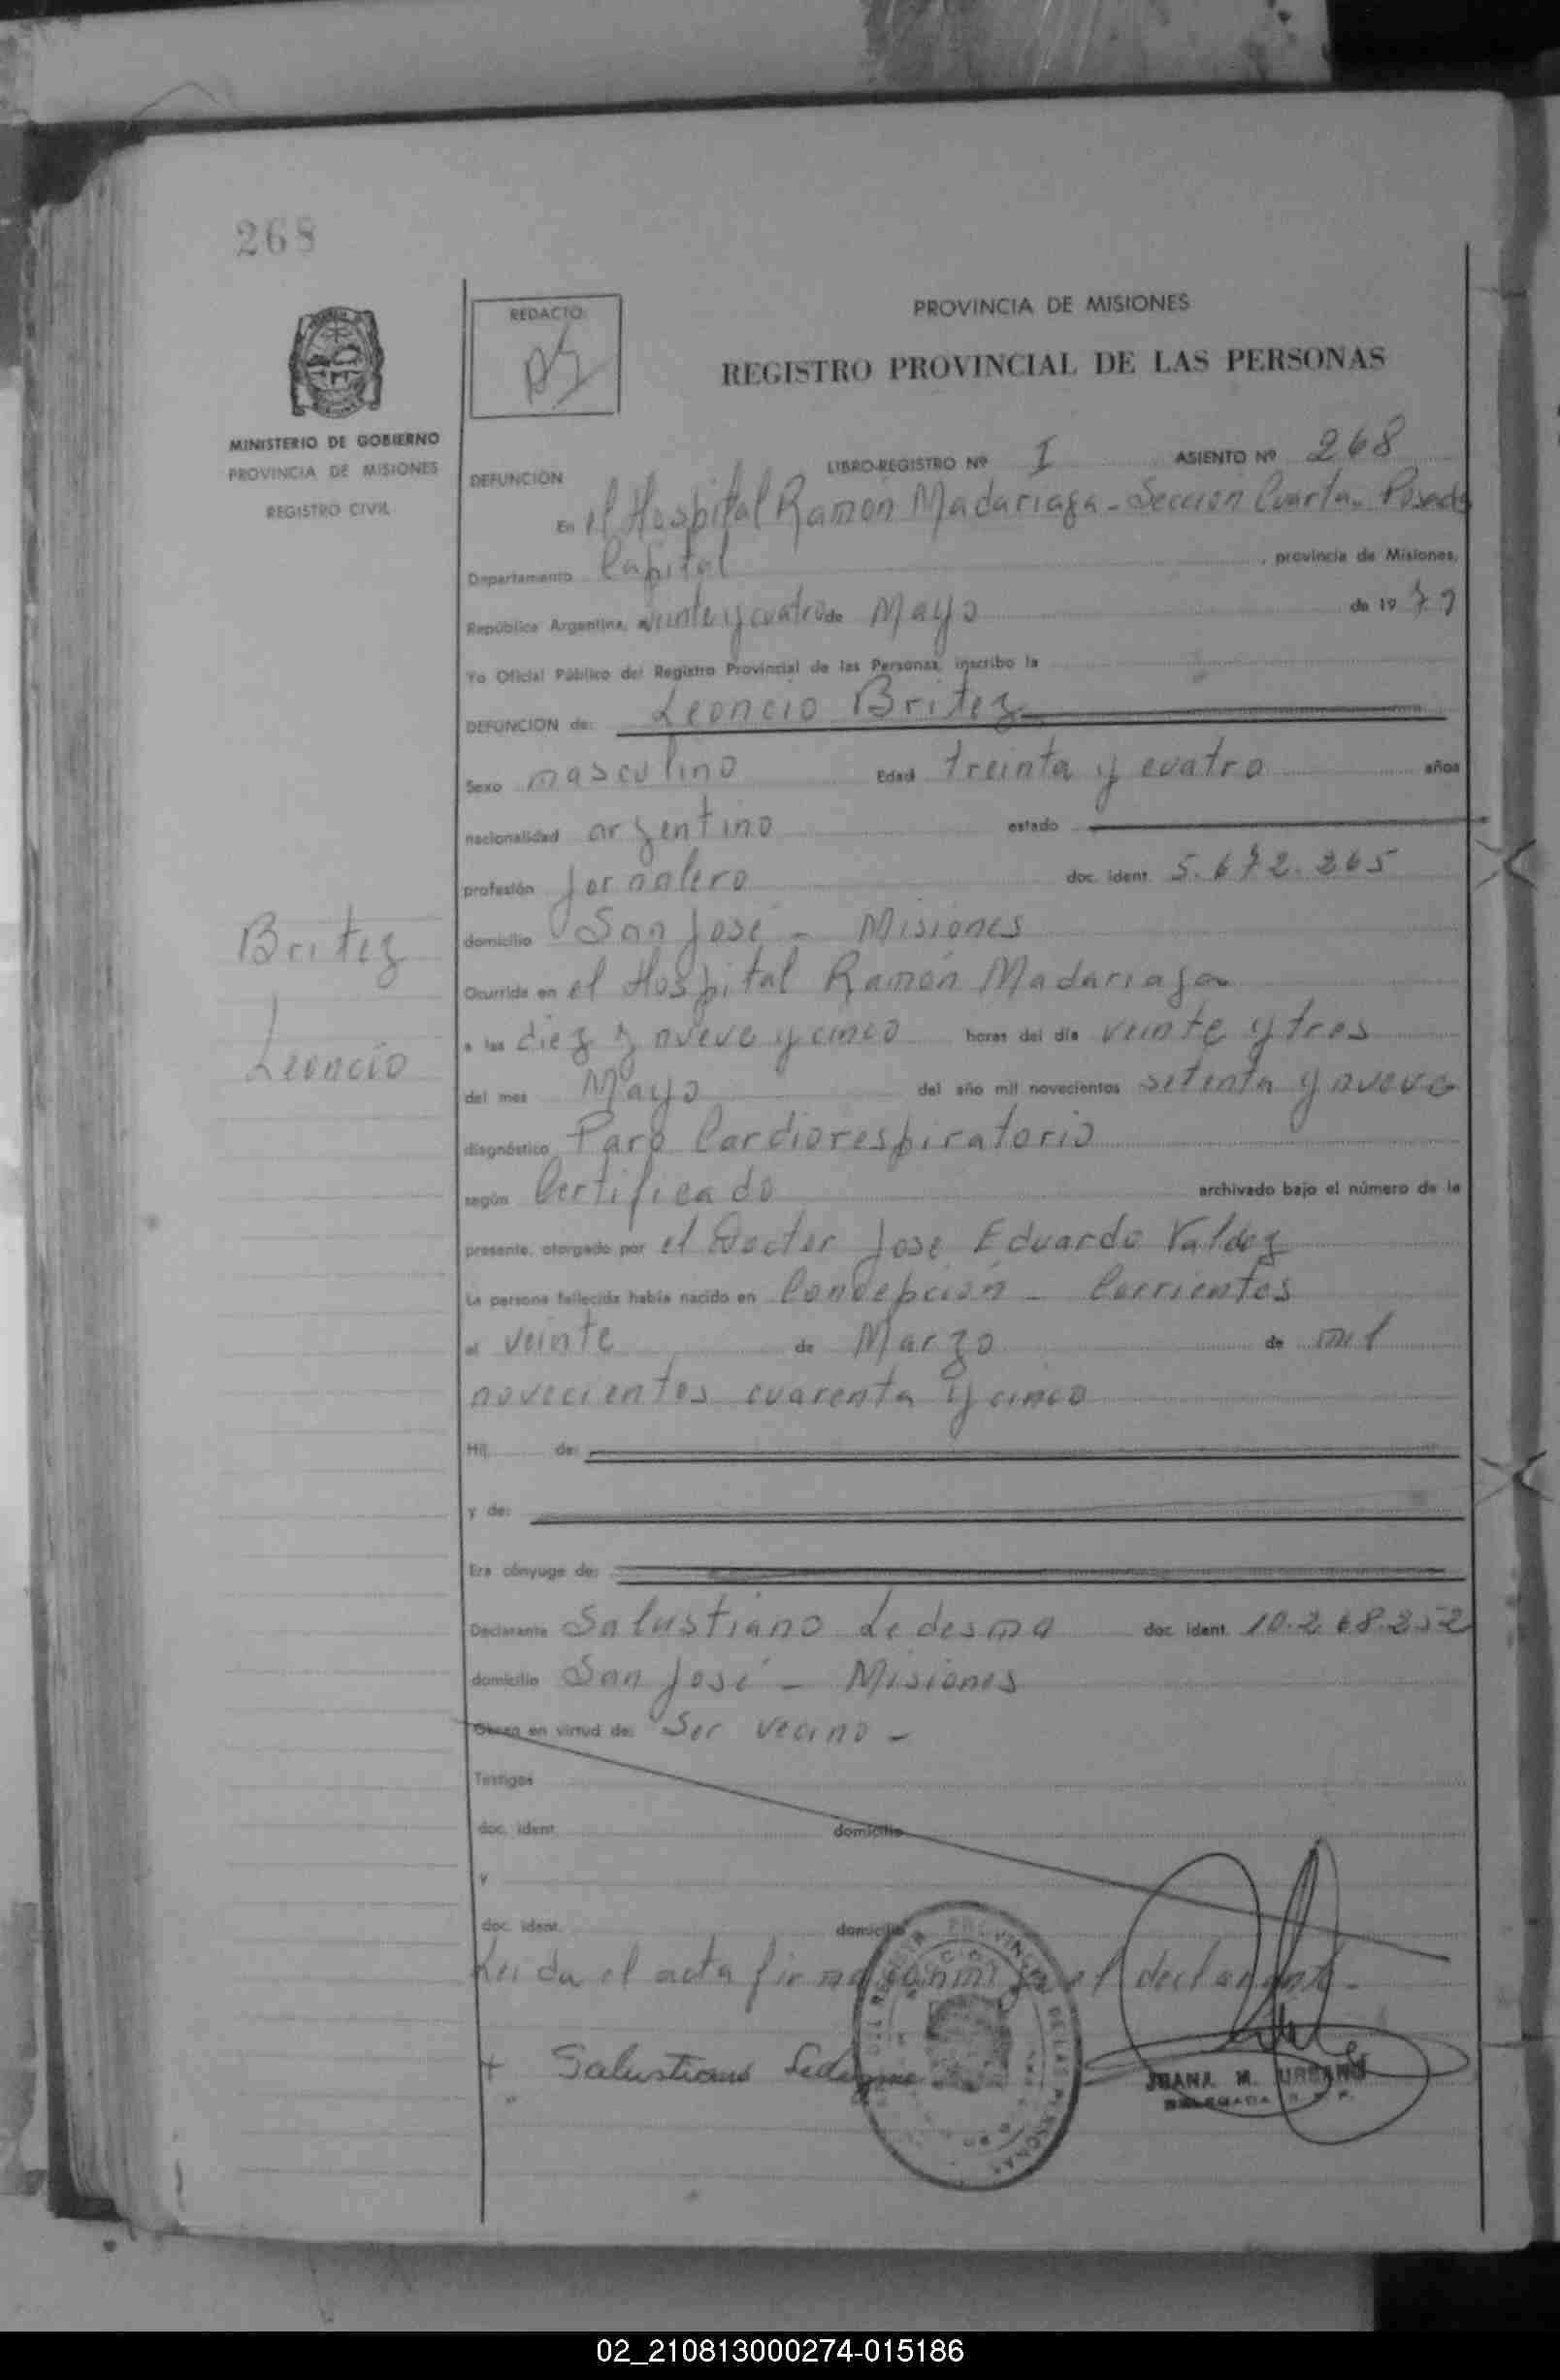 268
REDACTO:
PROVINCIA DE MISIONES
REGISTRO PROVINCIAL DE LAS PERSONAS
MINISTERIO DE GOBIERNO
PROVINCIA DE MISIONES
REGISTRO CIVIL
LIBRO-REGISTRO Nº I ASIENTO Nº 268
DEFUNCION
En el Hospital Ramón Madariaga - Sección Cuarta - Posadas
Departamento Capital, provincia de Misiones,
República Argentina, a veinte y cuatro de Mayo de 1979
Yo Oficial Público del Registro Provincial de las Personas, inscribo la
DEFUNCION de: Leoncio Britez
Sexo masculino Edad treinta y cuatro años
nacionalidad argentino estado
profesión jornalero doc. ident. 5.672.365
Britez
domicilio San José - Misiones
Ocurrida en el Hospital Ramón Madariaga
Leoncio
a las diez y nueve y cinco horas del día veinte y tres
del mes Mayo del año mil novecientos setenta y nueve
diagnóstico Paro Cardiorespiratorio
según Certificado archivado bajo el número de la
presente, otorgado por el Doctor Jose Eduardo Valdez
La persona fallecida había nacido en Concepción - Corrientes
el veinte de Marzo de mil
novecientos cuarenta y cinco
Hij de:
y de:
Era cónyuge de:
Declarante Salustiano Ledesma doc. ident. 10.268.352
domicilio San José - Misiones
Obran en virtud de: Ser vecino -
Testigos
doc. ident. domicilio
y
doc. ident. domicilio
Leida el acta firma conmigo el declarante.
+ Salustiano Ledesma
JUANA M. URBANO
DELEGADA R. P. P.
02_210813000274-015186